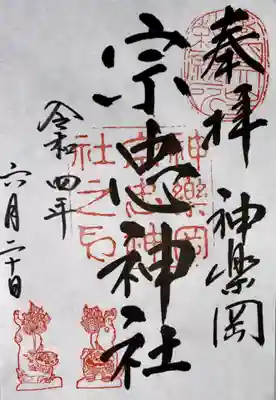 奉拝
神楽岡
宗忠神社
神樂岡
宗忠神
社之印
令和四年
六月二十日